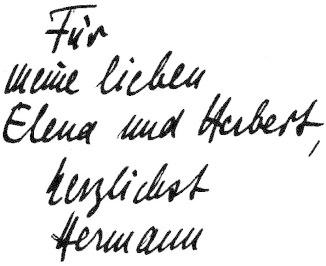 Für
meine lieben
Elena und Herbert,
herzlichst
Hermann